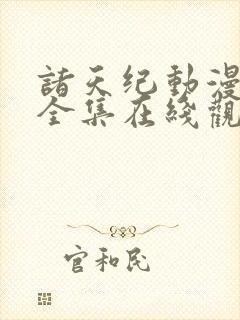 諸天纪動漫
全集在綫觀
官和民